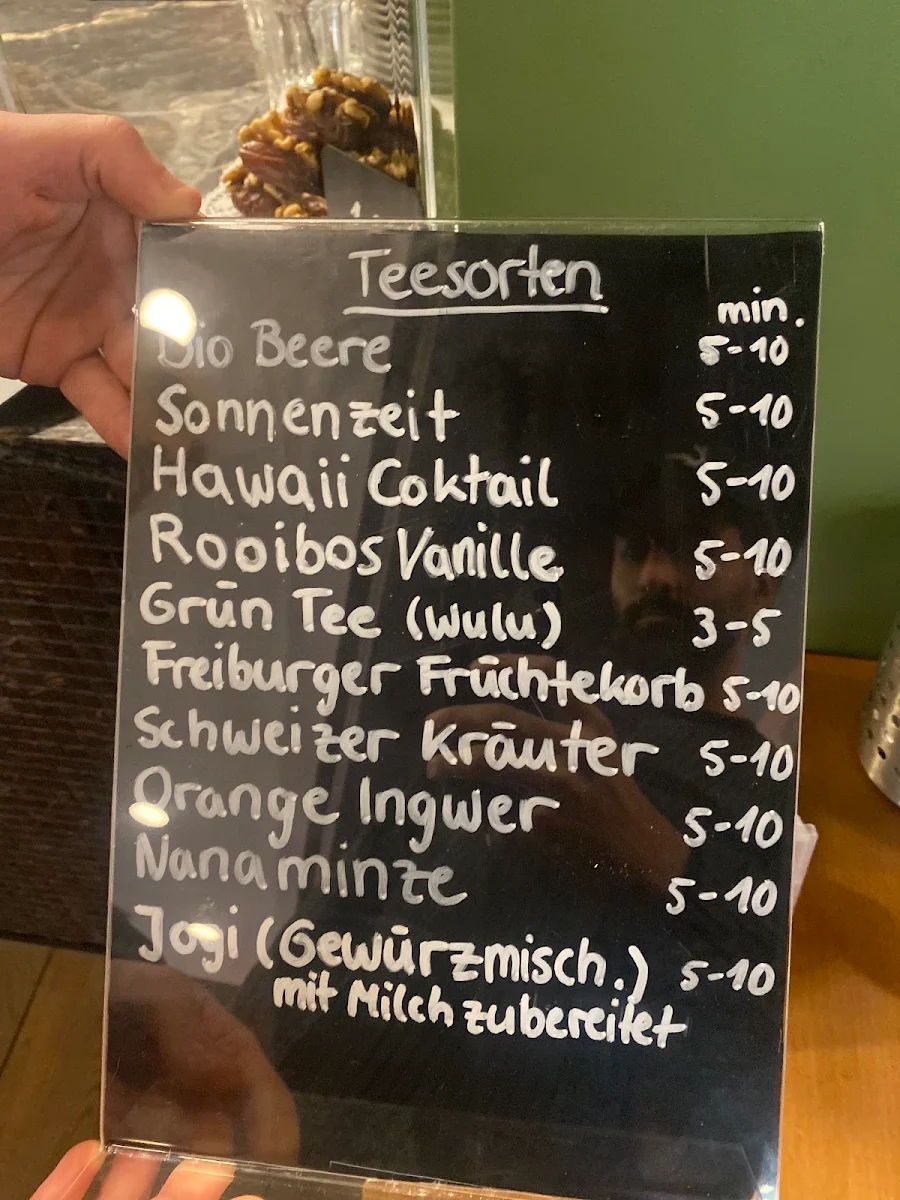 Teesorten
min.
Bio Beere 5-10
Sonnenzeit 5-10
Hawaii Coktail 5-10
Rooibos Vanille 5-10
Grün Tee (Wulu) 3-5
Freiburger Früchtekorb 5-10
Schweizer Kräuter 5-10
Orange Ingwer 5-10
Nanaminze 5-10
Jogi (Gewürzmisch.) 5-10
mit Milch zubereitet